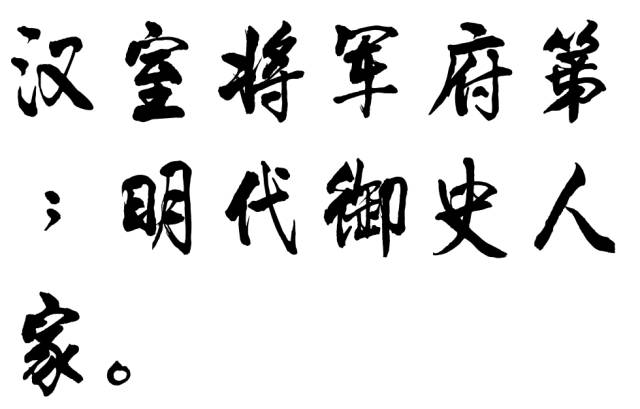 汉室将军府第
；明代御史人
家。